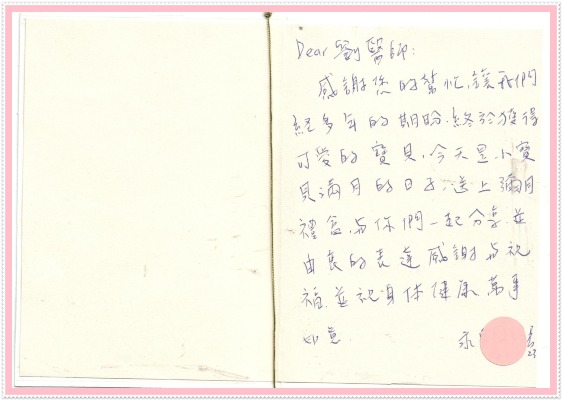 Dear 劉醫師：
感謝您的幫忙,讓我們
經多年的期盼,終於獲得
可愛的寶貝,今天是小寶
貝滿月的日子,送上彌月
禮盒,與你們一起分享,並
由衷的表達感謝與祝
福,並祝身体健康萬事
如意
永
23